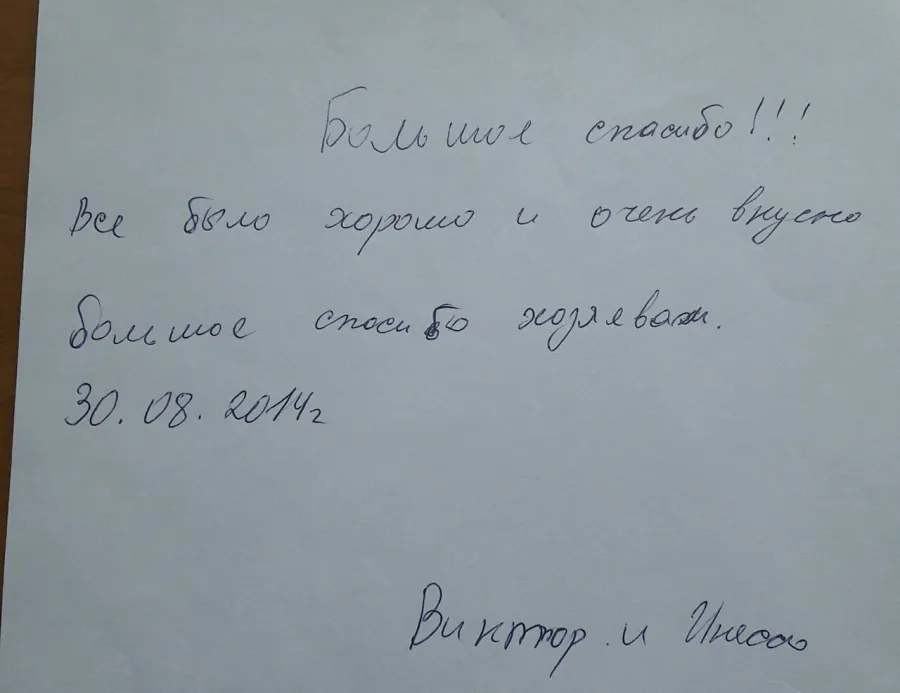 Большое спасибо!!!
Все было хорошо и очень вкусно
большое спасибо хозяевам.
30.08.2014г
Виктор и Инесса